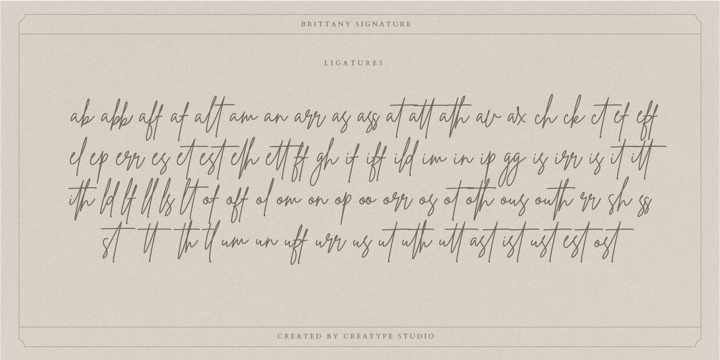 BRITTANY SIGNATURE
LIGATURES
ab abb aff af alt am an arr as ass at att ath av ax ch ck ct ef eff
el ep err es et est eth ett ff gh if iff ild im in ip gg is irr is it itt
ith ld lf ll ls lt of off ol om on op oo orr os ot oth ous outh rr sh ss
st tt th ll um un uff urr us ut uth utt ast ist ust est ost
CREATED BY CREATYPE STUDIO